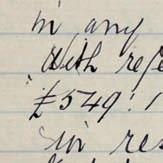 in any
With refe
£549 : 1
in res